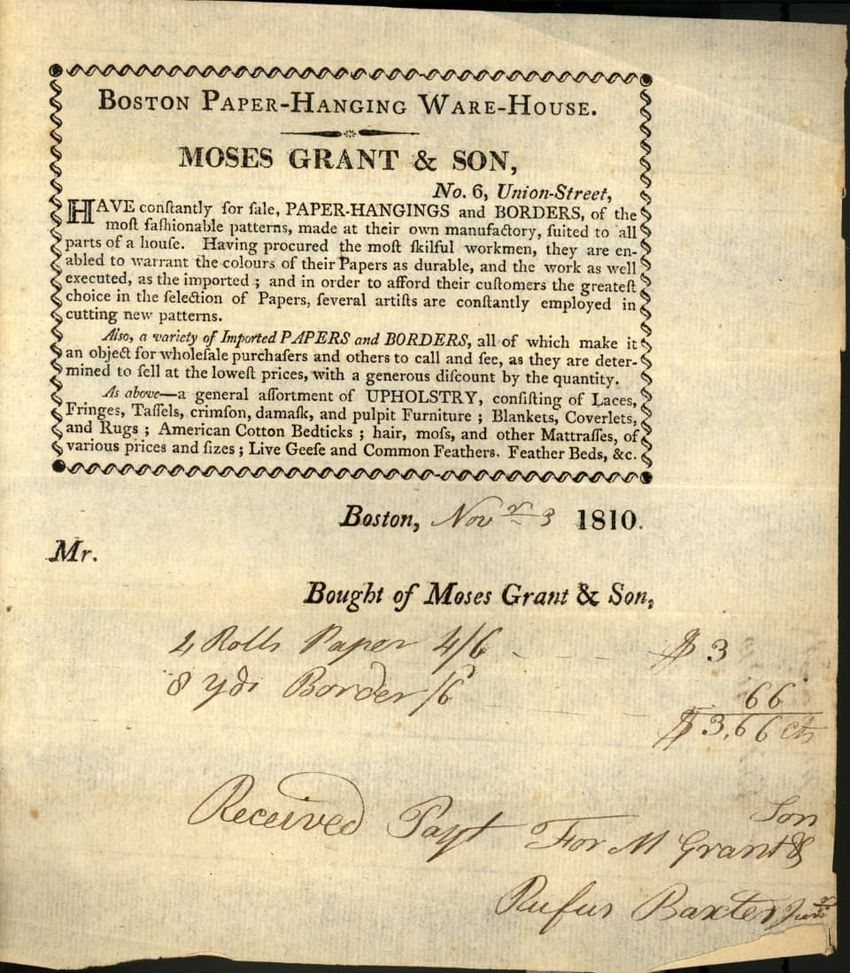 BOSTON PAPER-HANGING WARE-HOUSE.
MOSES GRANT & SON,
No. 6, Union-Street,
HAVE conſtantly for ſale, PAPER-HANGINGS and BORDERS, of the
moſt faſhionable patterns, made at their own manufactory, ſuited to all
parts of a houſe. Having procured the moſt ſkilful workmen, they are en-
abled to warrant the colours of their Papers as durable, and the work as well
executed, as the imported ; and in order to afford their cuſtomers the greateſt
choice in the ſelection of Papers, ſeveral artiſts are conſtantly employed in
cutting new patterns.
Alſo, a variety of Imported PAPERS and BORDERS, all of which make it
an object for wholeſale purchaſers and others to call and ſee, as they are deter-
mined to ſell at the loweſt prices, with a generous diſcount by the quantity.
As above—a general aſſortment of UPHOLSTRY, conſiſting of Laces,
Fringes, Taſſels, crimſon, damaſk, and pulpit Furniture ; Blankets, Coverlets,
and Rugs ; American Cotton Bedticks ; hair, moſs, and other Mattraſſes, of
various prices and ſizes ; Live Geeſe and Common Feathers. Feather Beds, &c.
Boston, Novr 3 1810.
Mr.
Bought of Moses Grant & Son,
4 Rolls Paper 4/6 $ 3
8 yds Border /6 66
$ 3,66 cts
Received Payt For M Grant & Son
Rufus Baxter Junr